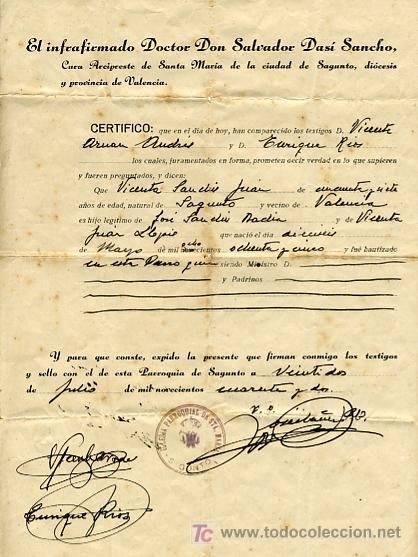 El infrafirmado Doctor Don Salvador Dasí Sancho,
Cura Arcipreste de Santa María de la ciudad de Sagunto, diócesis
y provincia de Valencia.
CERTIFICO: que en el día de hoy, han comparecido los testigos D. Vicente
Andrés y D. Enrique Ríos
los cuales, juramentados en forma, prometen decir verdad en lo que supieren
y fueren preguntados, y dicen:
Que Vicente Sanchis Juan de cincuenta y siete
años de edad, natural de Sagunto y vecino de Valencia
es hijo legítimo de José Sanchis Nadia y de Vicenta
Juan que nació el día dieciseis
de Mayo de mil ochocientos ochenta y cinco y fué bautizado
en esta Parroquia siendo Ministro D.
y Padrinos
Y para que conste, expido la presente que firman conmigo los testigos
y sello con el de esta Parroquia de Sagunto a Veintidos
de Julio de mil novecientos cuarenta y dos.
V.º
IGLESIA PARROQUIAL DE STA. MARIA
Enrique Ríos
TC todocoleccion.net